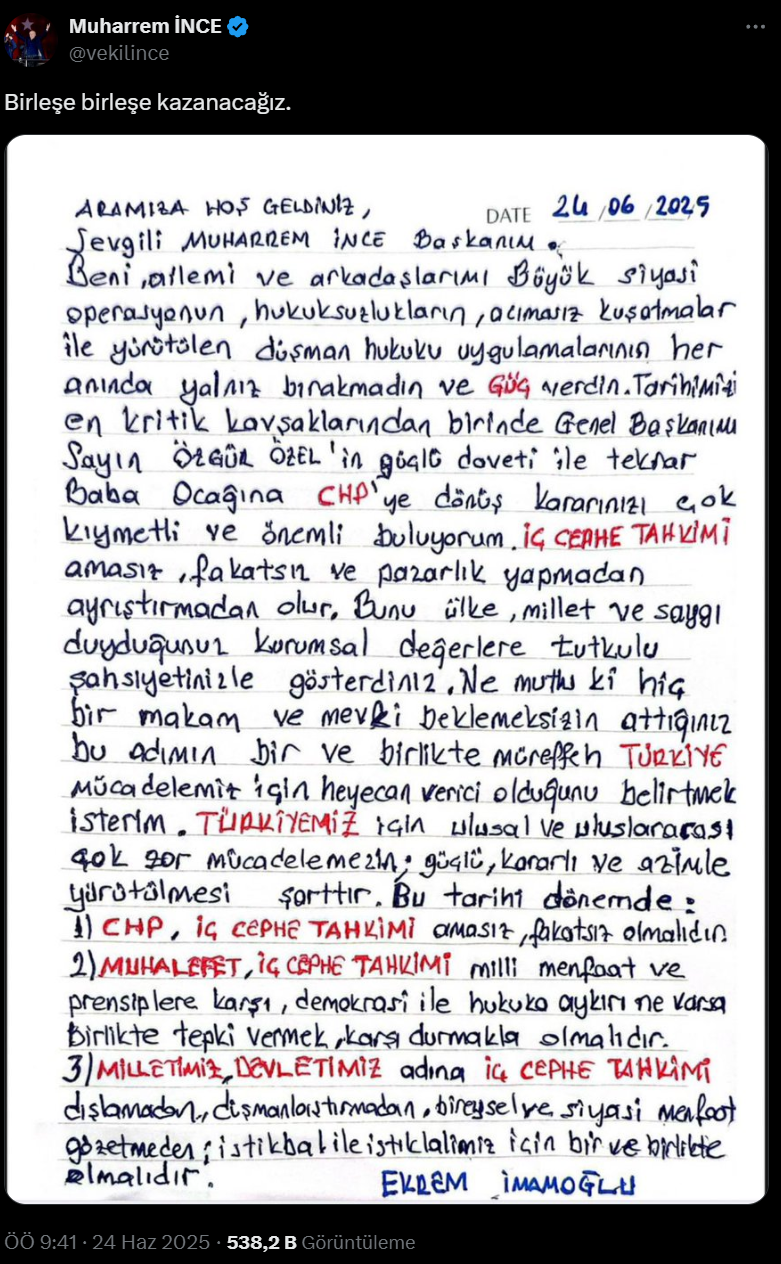 Muharrem İNCE
@vekilince
Birleşe birleşe kazanacağız.
ARAMIZA HOŞ GELDİNİZ, DATE 24/06/2025
Sevgili MUHARREM İNCE Başkanım.
Beni, ailemi ve arkadaşlarımı Büyük siyasi
operasyonun, hukuksuzlukların, acımasız kuşatmalar
ile yürütülen düşman hukuku uygulamalarının her
anında yalnız bırakmadın ve GÜÇ verdin. Tarihimizi
en kritik kavşaklarından birinde Genel Başkanımı
Sayın ÖZGÜR ÖZEL'in güçlü daveti ile tekrar
Baba Ocağına CHP'ye dönüş kararınızı çok
kıymetli ve önemli buluyorum. İÇ CEPHE TAHKİMİ
amasız, fakatsız ve pazarlık yapmadan
ayrıştırmadan olur. Bunu ülke, millet ve saygı
duyduğunuz kurumsal değerlere tutkulu
şahsiyetinizle gösterdiniz. Ne mutlu ki hiç
bir makam ve mevki beklemeksizin attığınız
bu adımın bir ve birlikte müreffeh TÜRKİYE
mücadelemiz için heyecan verici olduğunu belirtmek
isterim. TÜRKİYEMİZ için ulusal ve uluslararası
çok zor mücadelemezin; güçlü, kararlı ve azimle
yürütülmesi şarttır. Bu tarihi dönemde:
1) CHP, İÇ CEPHE TAHKİMİ amasız, fakatsız olmalıdır.
2) MUHALEFET, İÇ CEPHE TAHKİMİ milli menfaat ve
prensiplere karşı, demokrasi ile hukuka aykırı ne varsa
birlikte tepki vermek, karşı durmakla olmalıdır.
3) MİLLETİMİZ, DEVLETİMİZ adına İÇ CEPHE TAHKİMİ
dışlamadan, düşmanlaştırmadan, bireysel ve siyasi menfaat
gözetmeden; istikbal ile istiklalimiz için bir ve birlikte
olmalıdır.
EKREM İMAMOĞLU
ÖÖ 9:41 · 24 Haz 2025 · 538,2 B Görüntüleme